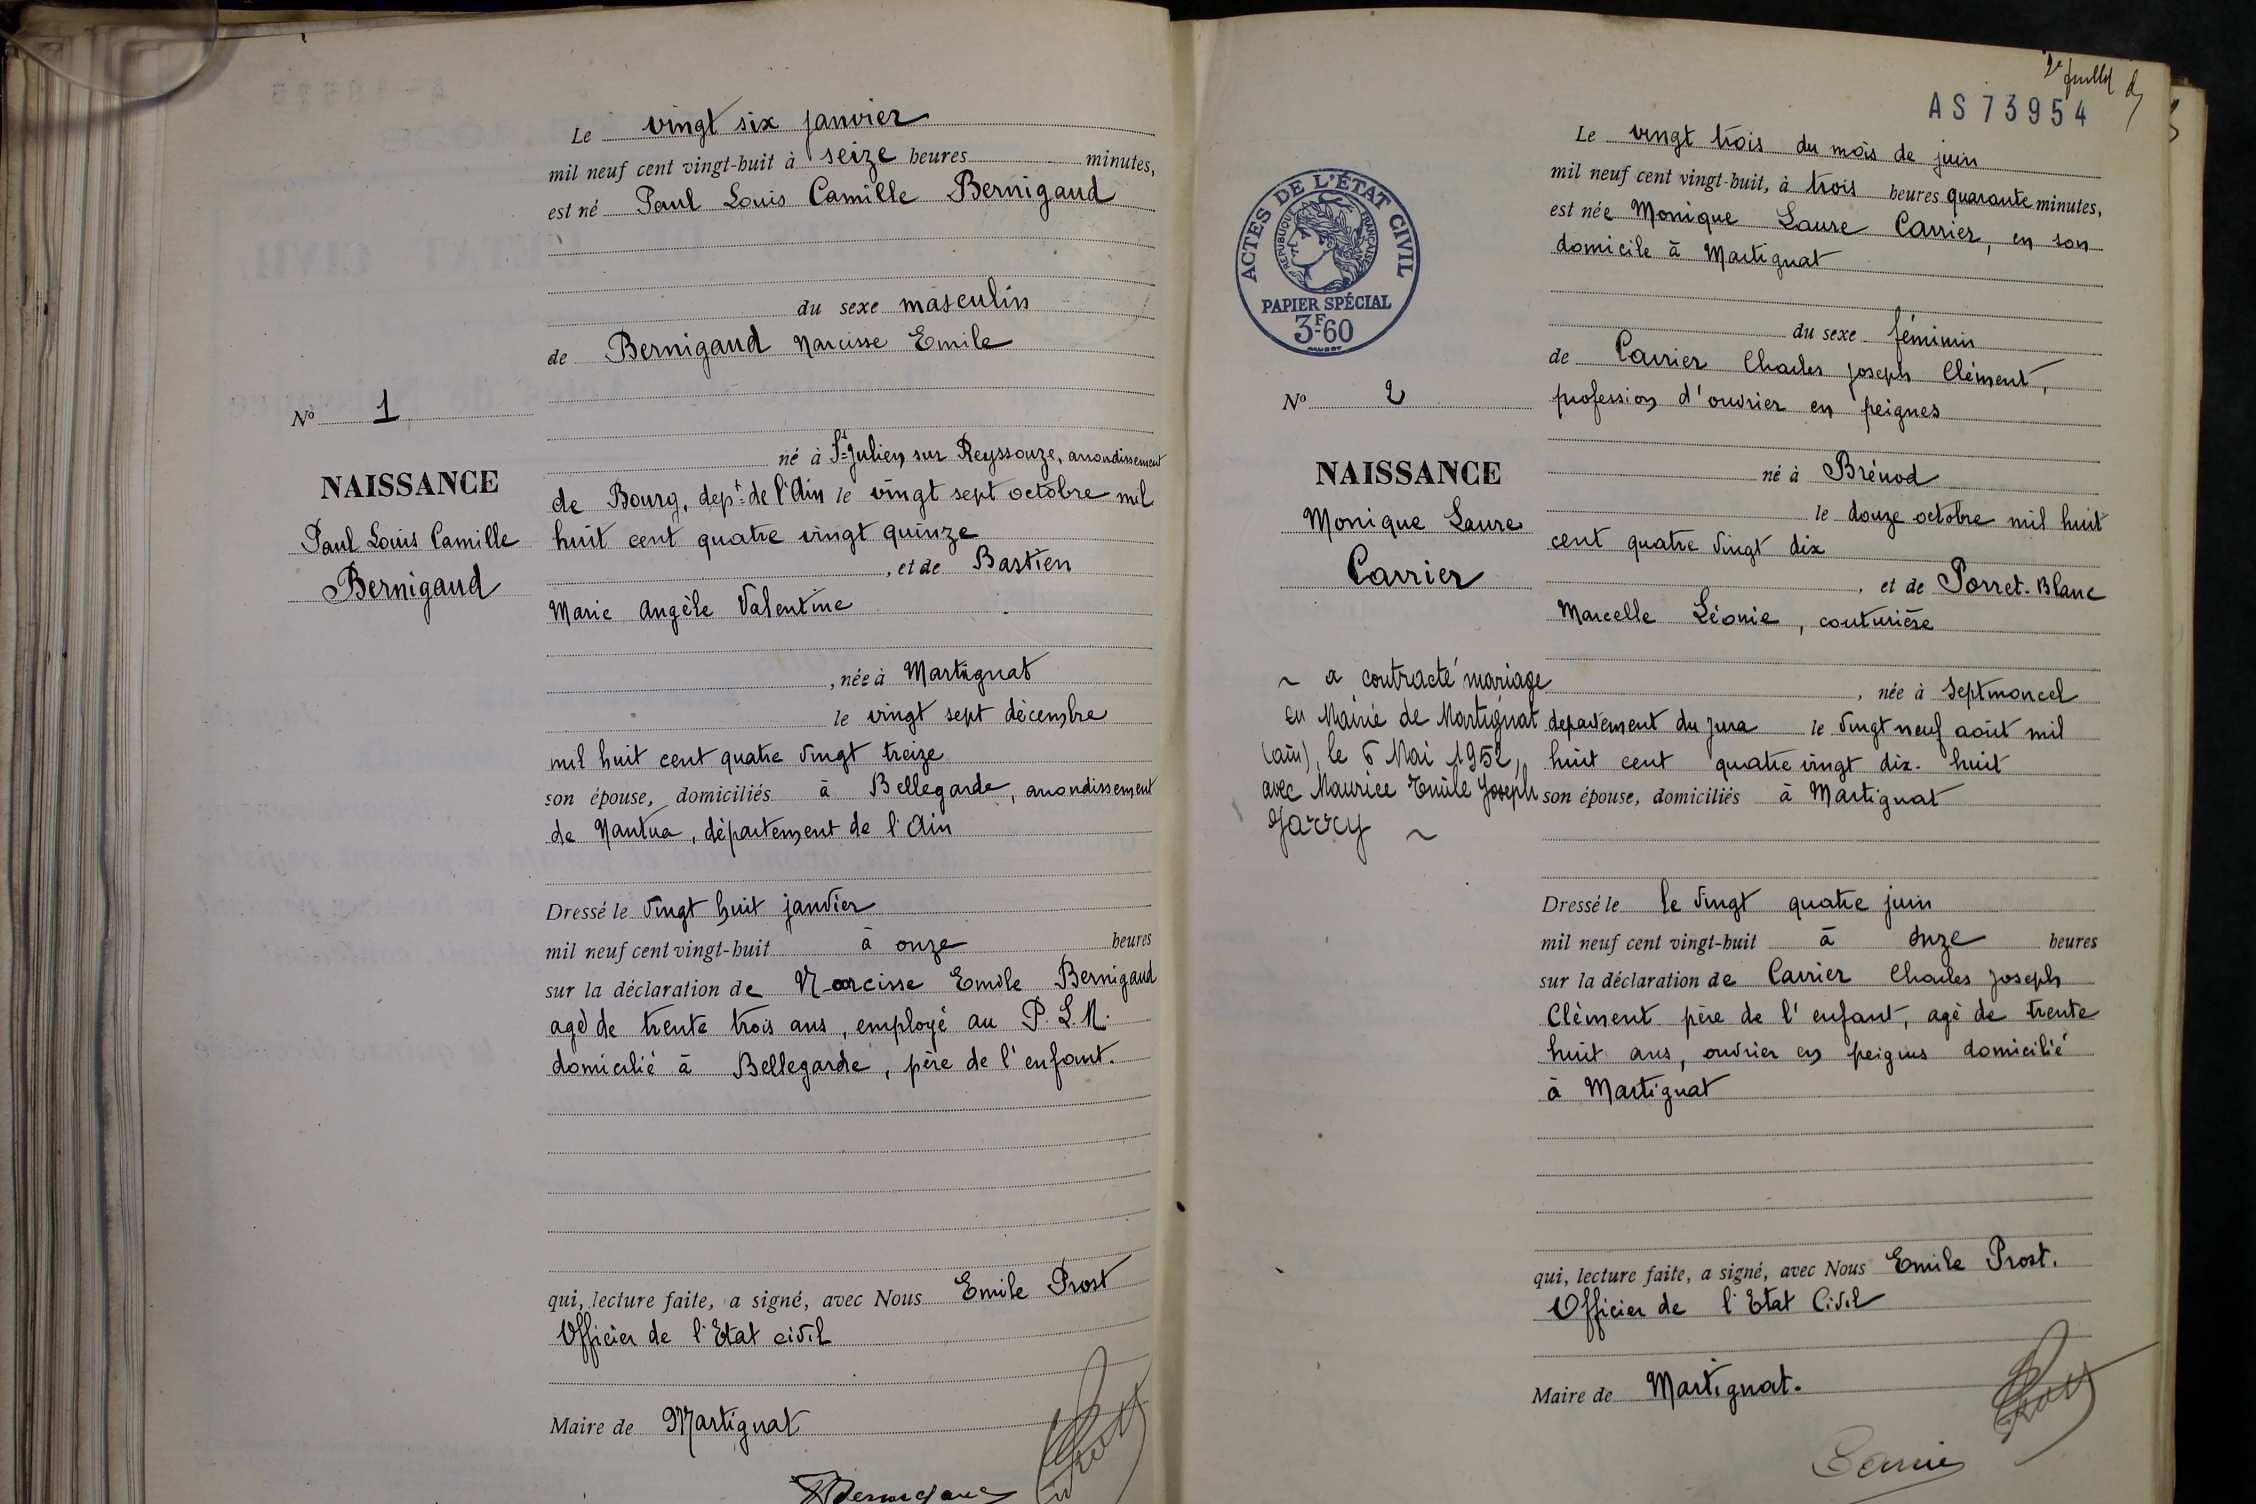 Le vingt six janvier
mil neuf cent vingt-huit à seize heures minutes,
est né Paul Louis Camille Bernigaud
du sexe masculin
de Bernigaud Narcisse Emile
né à St Julien sur Reyssouze, arrondissement
de Bourg, dept de l'Ain le vingt sept octobre mil
huit cent quatre vingt quinze
, et de Bastien
Marie Angèle Valentine
, née à Martignat
le vingt sept décembre
mil huit cent quatre vingt treize
son épouse, domiciliés à Bellegarde, arrondissement
de Nantua, département de l'Ain
Dressé le vingt huit janvier
mil neuf cent vingt-huit à onze heures
sur la déclaration de Narcisse Emile Bernigaud
agé de trente trois ans, employé au P. L. M.
domicilié à Bellegarde, père de l'enfant.
qui, lecture faite, a signé, avec Nous Emile Prost
Officier de l'Etat civil
Maire de Martignat
No 1
NAISSANCE
Paul Louis Camille
Bernigaud
2e feuillet
AS 73954
ACTES DE L'ÉTAT CIVIL
RÉPUBLIQUE FRANÇAISE
PAPIER SPÉCIAL
3F60
No 2
NAISSANCE
Monique Laure
Carrier
~ a contracté mariage
en Mairie de Martignat
(ain), le 6 Mai 1952,
avec Maurice Emile Joseph
Jarcy ~
Le vingt trois du mois de juin
mil neuf cent vingt-huit, à trois heures quarante minutes,
est née Monique Laure Carrier, en son
domicile à Martignat
du sexe féminin
de Carrier Charles Joseph Clément,
profession d'ouvrier en peignes
né à Brénod
le douze octobre mil huit
cent quatre vingt dix
, et de Porret-Blanc
Marcelle Léonie, couturière
, née à Septmoncel
departement du Jura le vingt neuf août mil
huit cent quatre vingt dix-huit
son épouse, domiciliés à Martignat
Dressé le le vingt quatre juin
mil neuf cent vingt-huit à onze heures
sur la déclaration de Carrier Charles Joseph
Clèment père de l'enfant, agè de trente
huit ans, ouvrier en peignes domicilié
à Martignat
qui, lecture faite, a signé, avec Nous Emile Prost.
Officier de l'Etat Civil
Maire de Martignat.